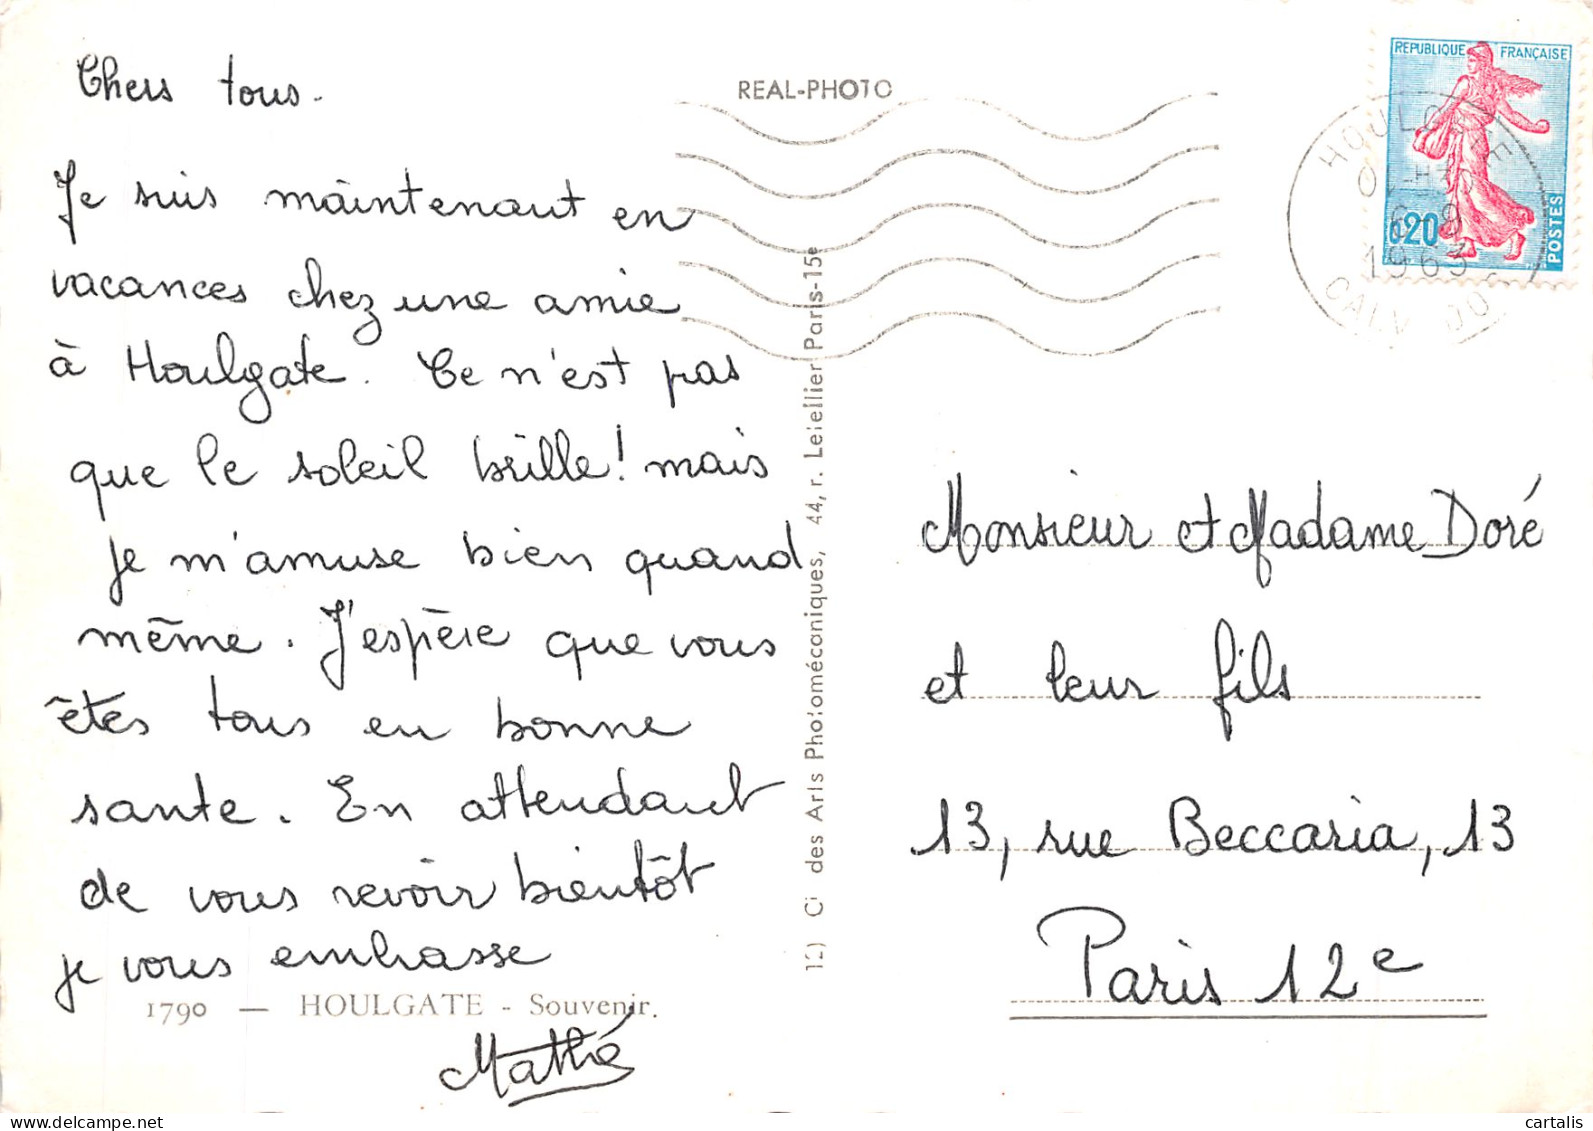 Chers tous.
Je suis maintenant en
vacances chez une amie
à Houlgate. Ce n'est pas
que le soleil brille! mais
je m'amuse bien quand
même. J'espère que vous
êtes tous en bonne
sante. En attendant
de vous revoir bientôt
je vous embrasse
1790 — HOULGATE - Souvenir.
Mathé
REAL-PHOTO
des Arts Photomécaniques, 44, r. Letellier Paris-15e
REPUBLIQUE FRANÇAISE
0,20
POSTES
HOULGATE
6-9
1963
CALVADOS
Monsieur et Madame Doré
et leur fils
13, rue Beccaria, 13
Paris 12e
cartalis